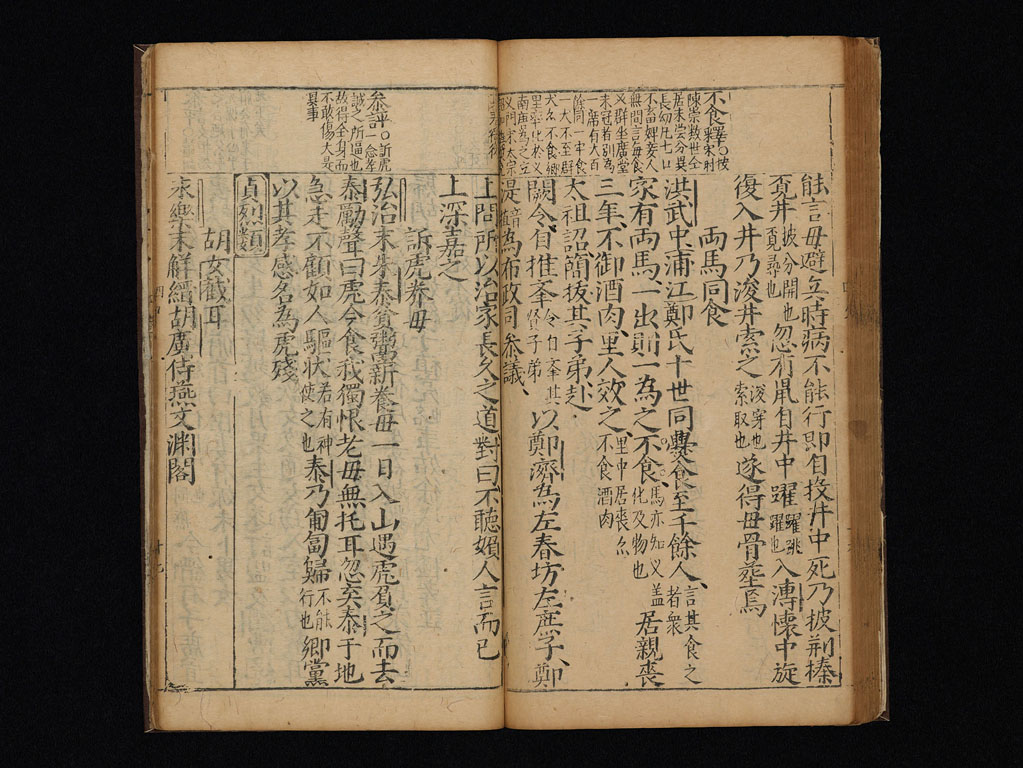 不食釋○宋時
陳崇数世仝
居未尝分異
長幼凡七口
不畜婢妾人
無間言每食
必群坐廣堂
未冠者别為
一席有犬百
餘同一牢食
一犬不至群
犬亦不食鄉
里率化
能言母避兵時病不能行即自投井中死乃披荆榛
覔井披分開也覔尋也忽有鼠自井中躍躍跳躍也入溥懷中旋
復入井乃浚井索之浚穿也索取也遂得母骨塟焉
両馬同食
洪武中浦江鄭氏十世同㸑食至千餘人言其食之者衆
家有両馬一出則一為之不食馬亦知义盖化及物也居親丧
三年不御酒肉里人效之里中居丧亦不食酒肉
太祖詔簡拔其子弟赴
闕令自推举令自举其賢子弟以鄭濟為左春坊左庶子鄭
湜音植為布政司参議
上問所以治家長久之道對曰不聽婦人言而已
上深嘉之
参評○訴虎
一念孝
誠之所逼也
故得全身而
不敢傷夫是
異事
訴虎养母
弘治末朱泰貧鬻薪養母一日入山遇虎負之而去
泰勵聲曰虎今食我獨恨老母無托耳忽弃泰于地
急走不顧如人驅状若有神使之也泰乃匍匐歸不能行也鄉黨
以其孝感名為虎殘
貞烈類
胡女截耳
永樂末解縉胡廣侍燕文渊閣